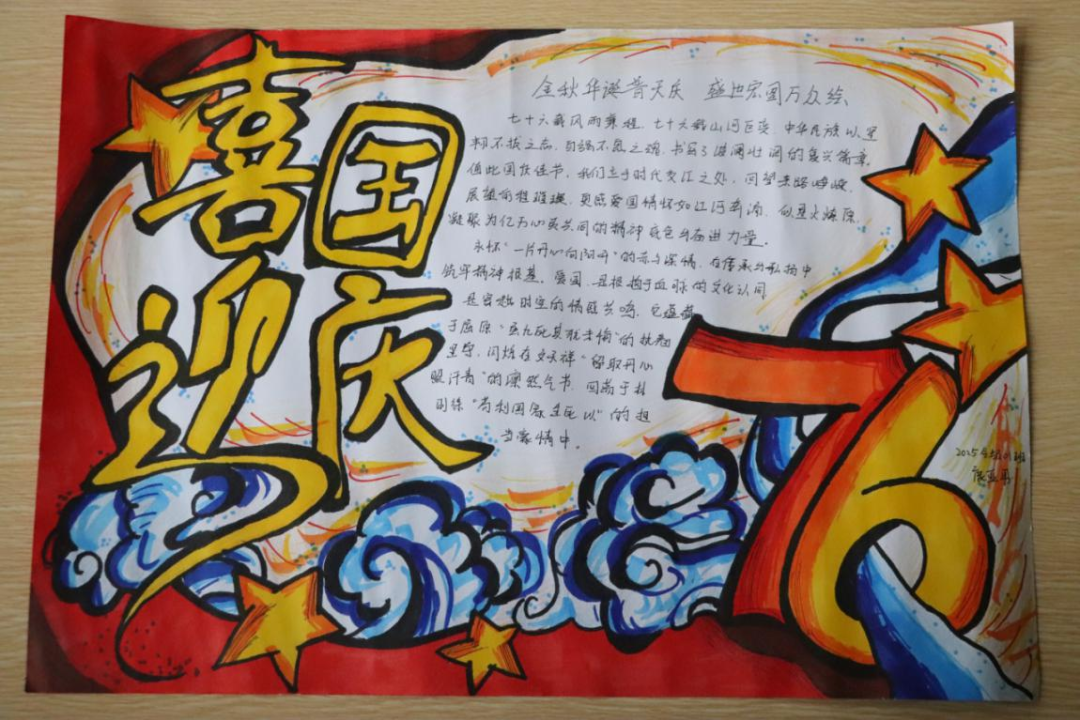 喜迎国庆
金秋华诞普天庆 盛世宏图万众绘
七十六载风雨兼程,七十六载山河巨变,中华民族以坚
韧不拔之志,自强不息之魂,书写了波澜壮阔的复兴篇章。
值此国庆佳节,我们立于时代交汇之处,回望来路峥嵘,
展望前程璀璨,更感爱国情怀如江河奔涌,似星火燎原,
凝聚为亿万心灵共同的精神底色与奋进力量。
永怀“一片丹心向阳开”的赤与深情,在传承与弘扬中
筑牢精神根基。爱国,是根植于血脉的文化认同
是穿越时空的情感共鸣,它蕴藏
于屈原“虽九死其犹未悔”的执着
坚守,闪烁在文天祥“留取丹心
照汗青”的凛然气节,回荡于林
则徐“苟利国家生死以”的担
当豪情中。
76
2025